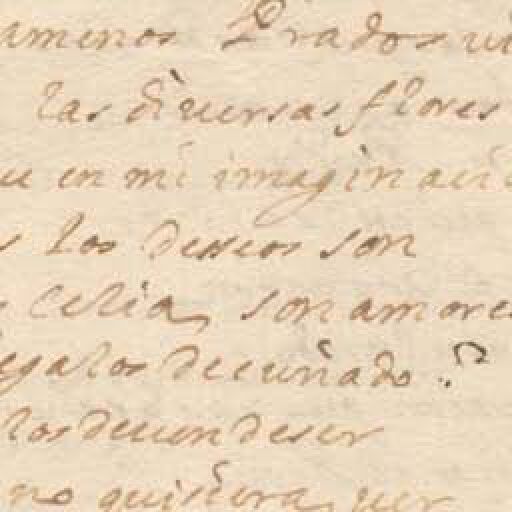 amenos Prados vi
las diuersas flores
en mi imagin aci
s los desseos son
Celia, son amores
egalos de cuñado ?
los deuen de ser
no quisiera, uer